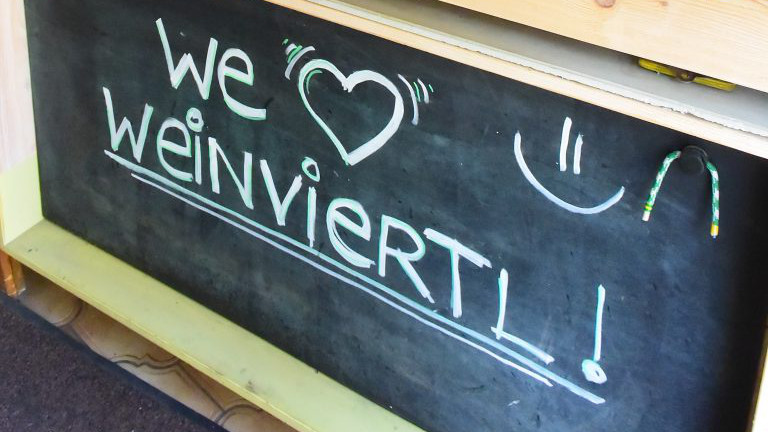 We ♥
WeinvierTL!